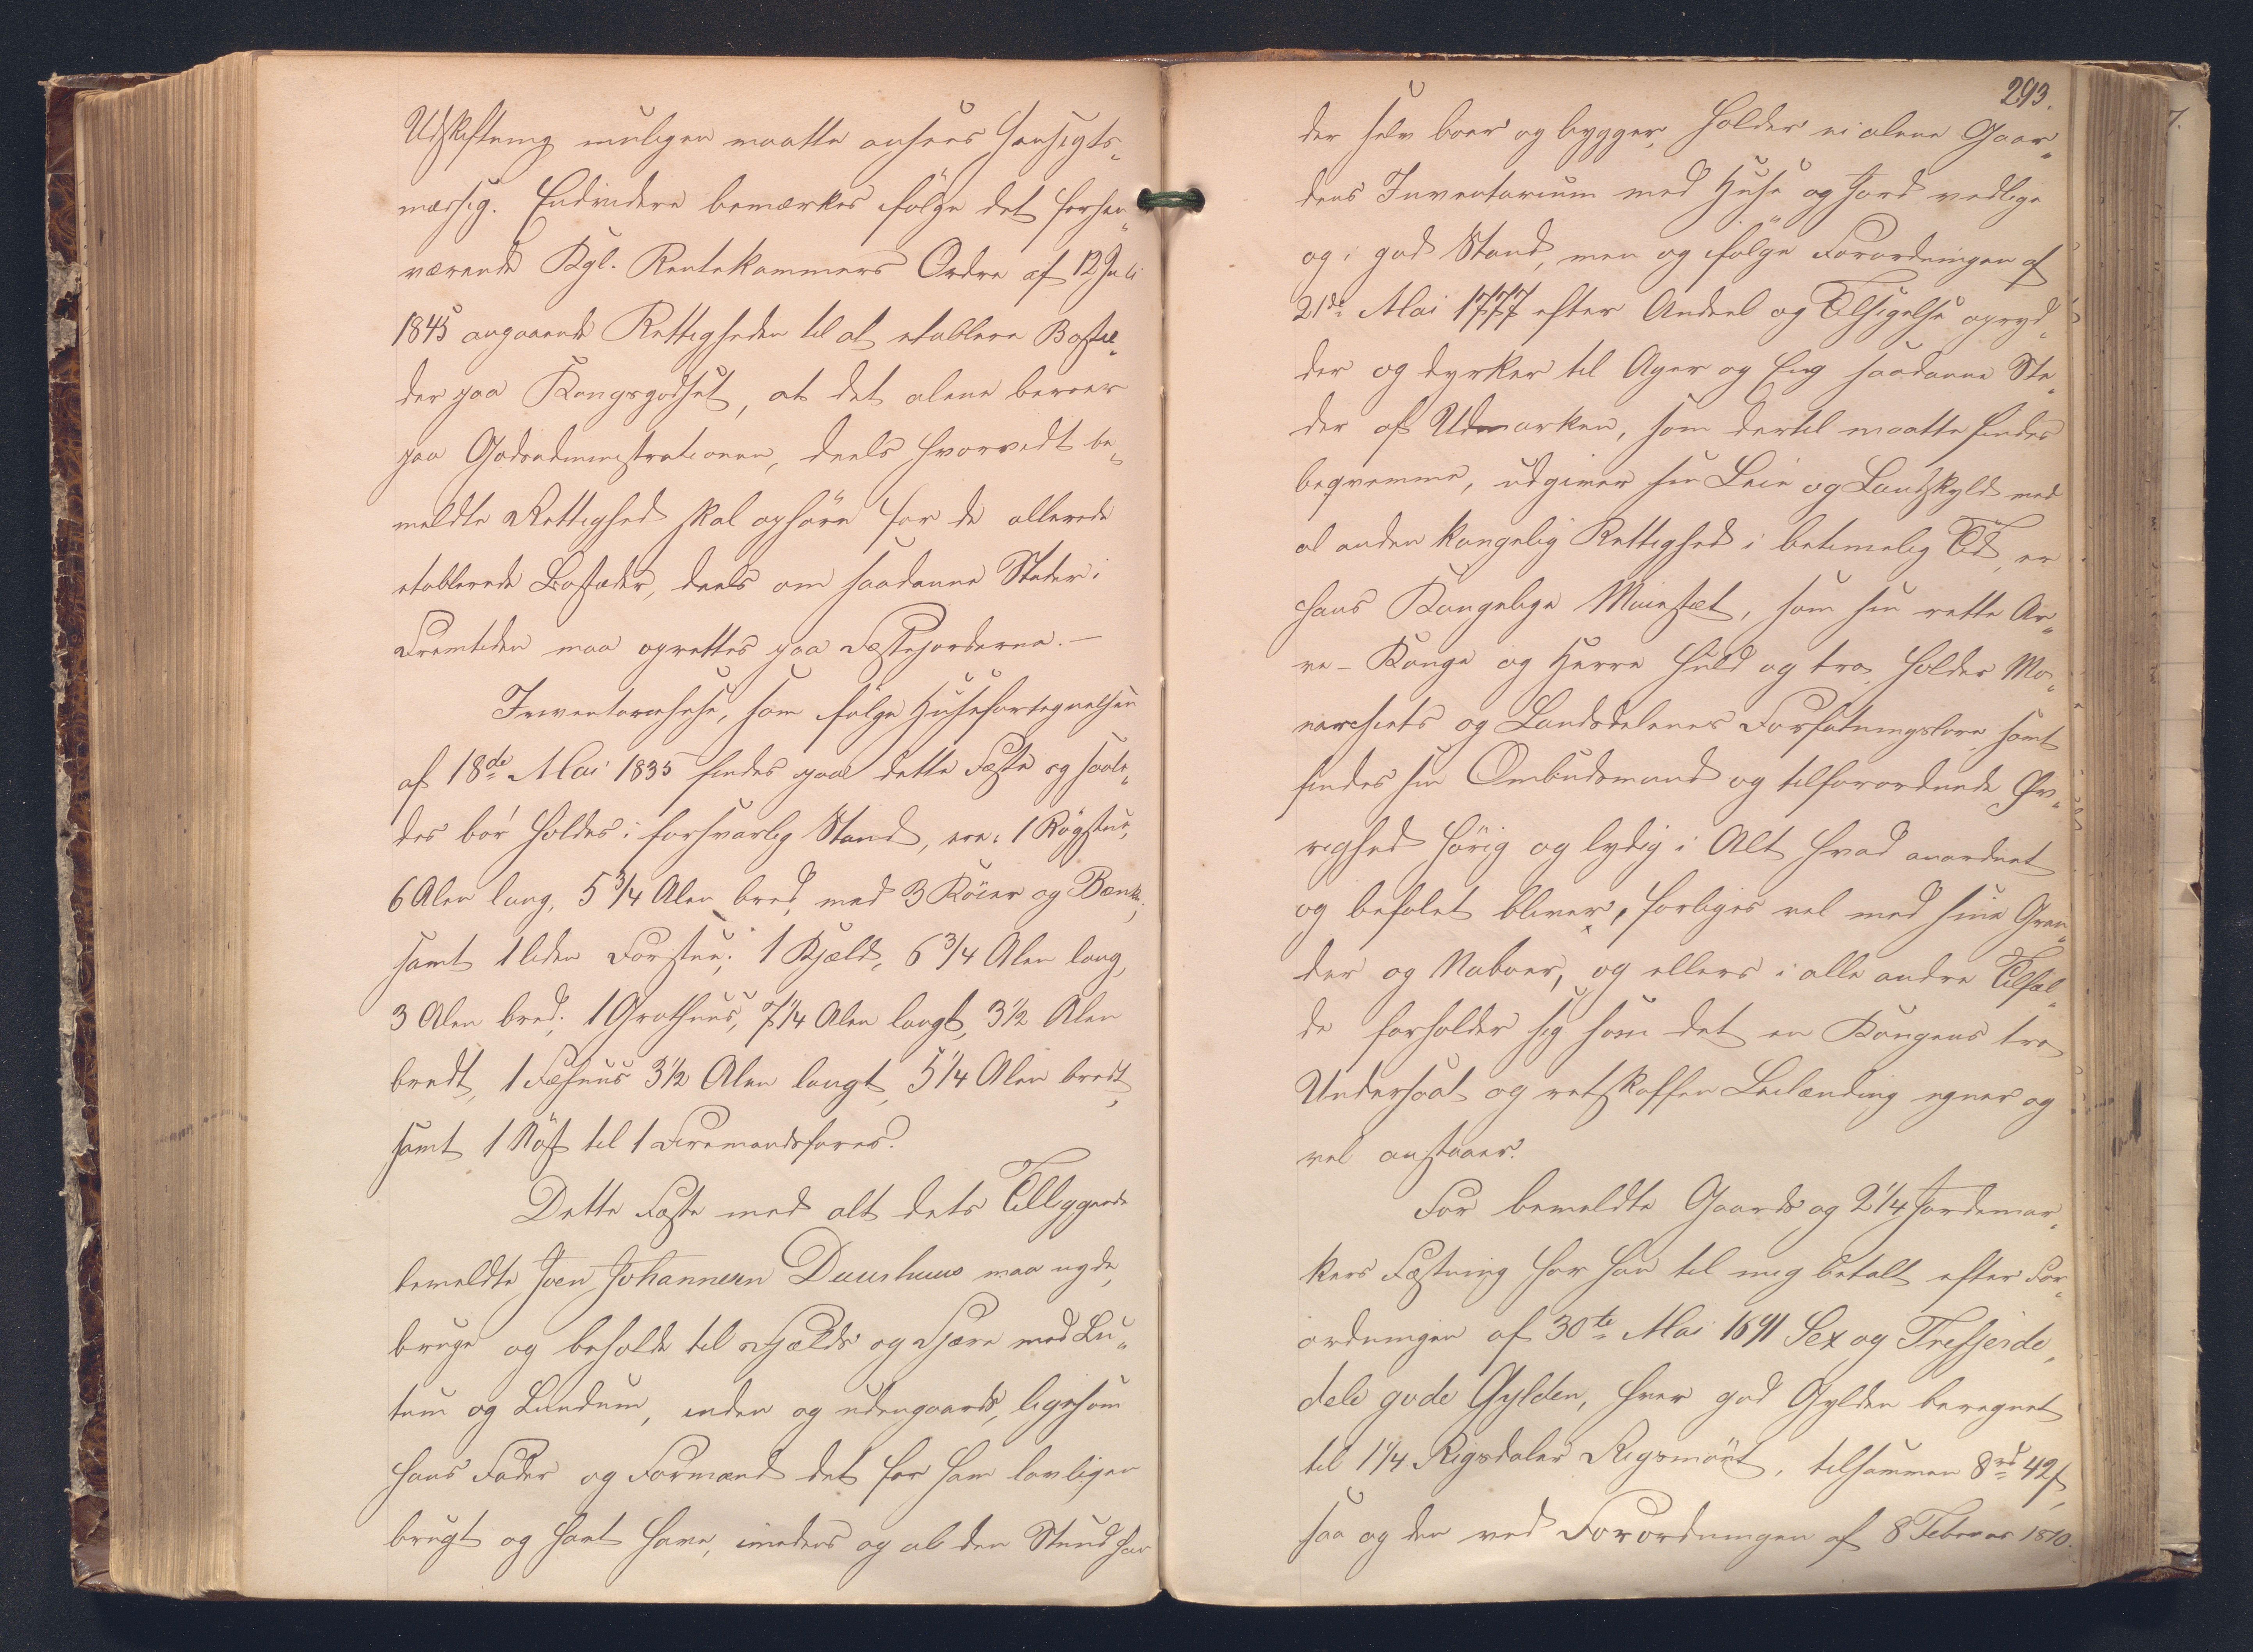 Udskiftning muligen maatte ansees hensigts-
mæssig. Endvidere bemærkes ifölge det forhen-
værende Kgl. Rentekammers Ordre af 12 Juli
1845 angaaende Rettigheden til at etablere Bostæ-
der paa Kongsgodset, at det alene beroer
paa Godsadministrationen, deels hvorvidt be-
meldte Rettighed skal ophöre for de allerede
etablerede Bosteder, deels om saadanne Steder i
Fremtiden maa oprettes paa Fæstejorderne. —
Inventariehuse, som ifölge Husefortegnelsen
af 18de Mai 1835 findes paa dette Fæste og saale-
des bör holdes i forsvarlig Stand, ere: 1 Rögstue,
6 Alen lang, 5 3/4 Alen bred, med 3 Köier og Bænk;
samt 1 liden Forstue; 1 Kjeld, 6 3/4 Alen lang,
3 Alen bred; 1 Grothuus, 7 1/4 Alen langt, 3 1/2 Alen
bredt, 1 Fæhuus 3 1/2 Alen langt, 5 1/4 Alen bredt,
samt 1 Nöst til 1 Firemandsfares.
Dette Fæste med alt dets Tilliggende
bemeldte Joen Johannesen Duurhuus maa nyde,
bruge og beholde til Fjelds og Fjære med Lu-
tum og Lundum, inden og udengaards, ligesom
hans Fader og Formænd det för ham lovligen
brugt og havt have, imedens og al den Stund han
293.
der selv boer og bygger, holder ei alene Gaar-
dens Inventarium med Huse og Jord vedlige
og i god Stand, men og ifölge Forordningen af
21de Mai 1777 efter Andeel og Tilsigelse opryd-
der og dyrker til Ager og Eng saadanne Ste-
der af Udmarken, som dertil maatte findes
beqvemme, udgiver sin Leie og Landskyld med
al anden kongelig Rettighed i betimelig Tid, er
Hans Kongelige Maiestæt, som sin rette Ar-
ve-Konge og Herre huld og tro, holder Mo-
narchiets og Landsdelenes Forfatningslove, samt
findes sin Ombudsmand og tilforordnede Øv-
righed hörig og lydig i Alt hvad anordnet
og befalet bliver, forliges vel med sine Gran-
der og Naboer, og ellers i alle andre Tilfæl-
de forholder sig som det en Kongens tro
Undersaat og retskaffen Leilænding egner og
vel anstaaer.
For bemeldte Gaards og 2 1/4 Jordemar-
kers Fæstning har han til mig betalt efter For-
ordningen af 30te Mai 1691 Sex og Trefjerde-
dele gode Gylden, hver god Gylden beregnet
til 1 1/4 Rigsdaler Rigsmönt, tilsammen 8rd 42ß,
saa og den ved Forordningen af 8 Februar 1810